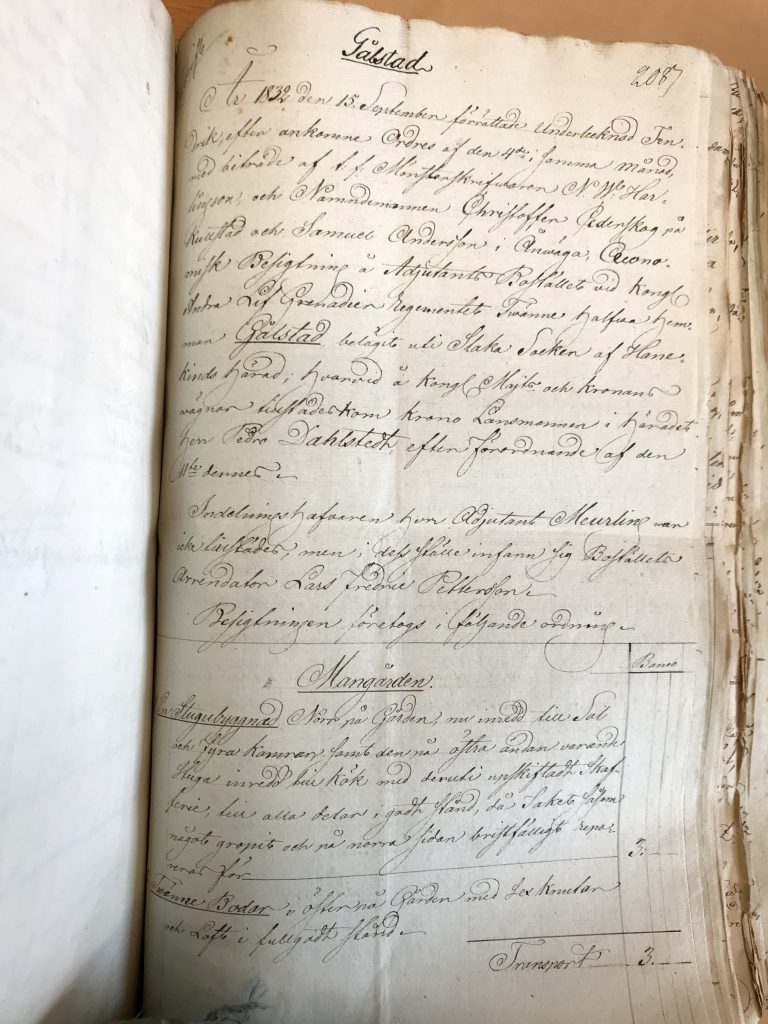 Gålstad
2087
År 1832 den 15. September förrättade Undertecknad Fen-
drik, efter ankomne Ordres af den 4de i samma månad,
med biträde af t. f. Mönsterskrifwaren N. Wm Har-
lingson, och Nämndemännen Christoffer Cederskog på
Kullstad och Samuel Andersson i Ånwäga, Œcono-
misk Besigtning å Adjutants Bostället vid Kongl.
Andra Lif Grenadier Regementet Twänne halfwa hem-
man Gålstad belägit uti Slaka Socken af Hane-
kinds härad; hvarvid å Kongl. Majts och Kronans
wägnar tillstädeskom Krono Länsmannen i häradet
herr Pedro Dahlstedt, efter förordnande af den
11te dennes.
Indelningshafvaren herr Adjutant Meurling war
icke tillstädes, men i dess ställe infann sig Boställets
Arrendator Lars Fredric Petterson.
Besigtningen företogs i följande ordning.
Banco
Mangården.
En Stugubyggnad Norr på Gården, nu inredd till Sal
och fyra Kamrar, samt den på östra ändan varande
Stuga inredd till Kök med deruti upskiftadt Skaf-
ferie, till alla delar i godt stånd, då Taket såsom
något gropit och på norra sidan bristfälligt repa-
reras för 3.
Twänne Bodar i öster på Gården med sex knutar
och Loft i fullgodt stånd.
Transport 3.